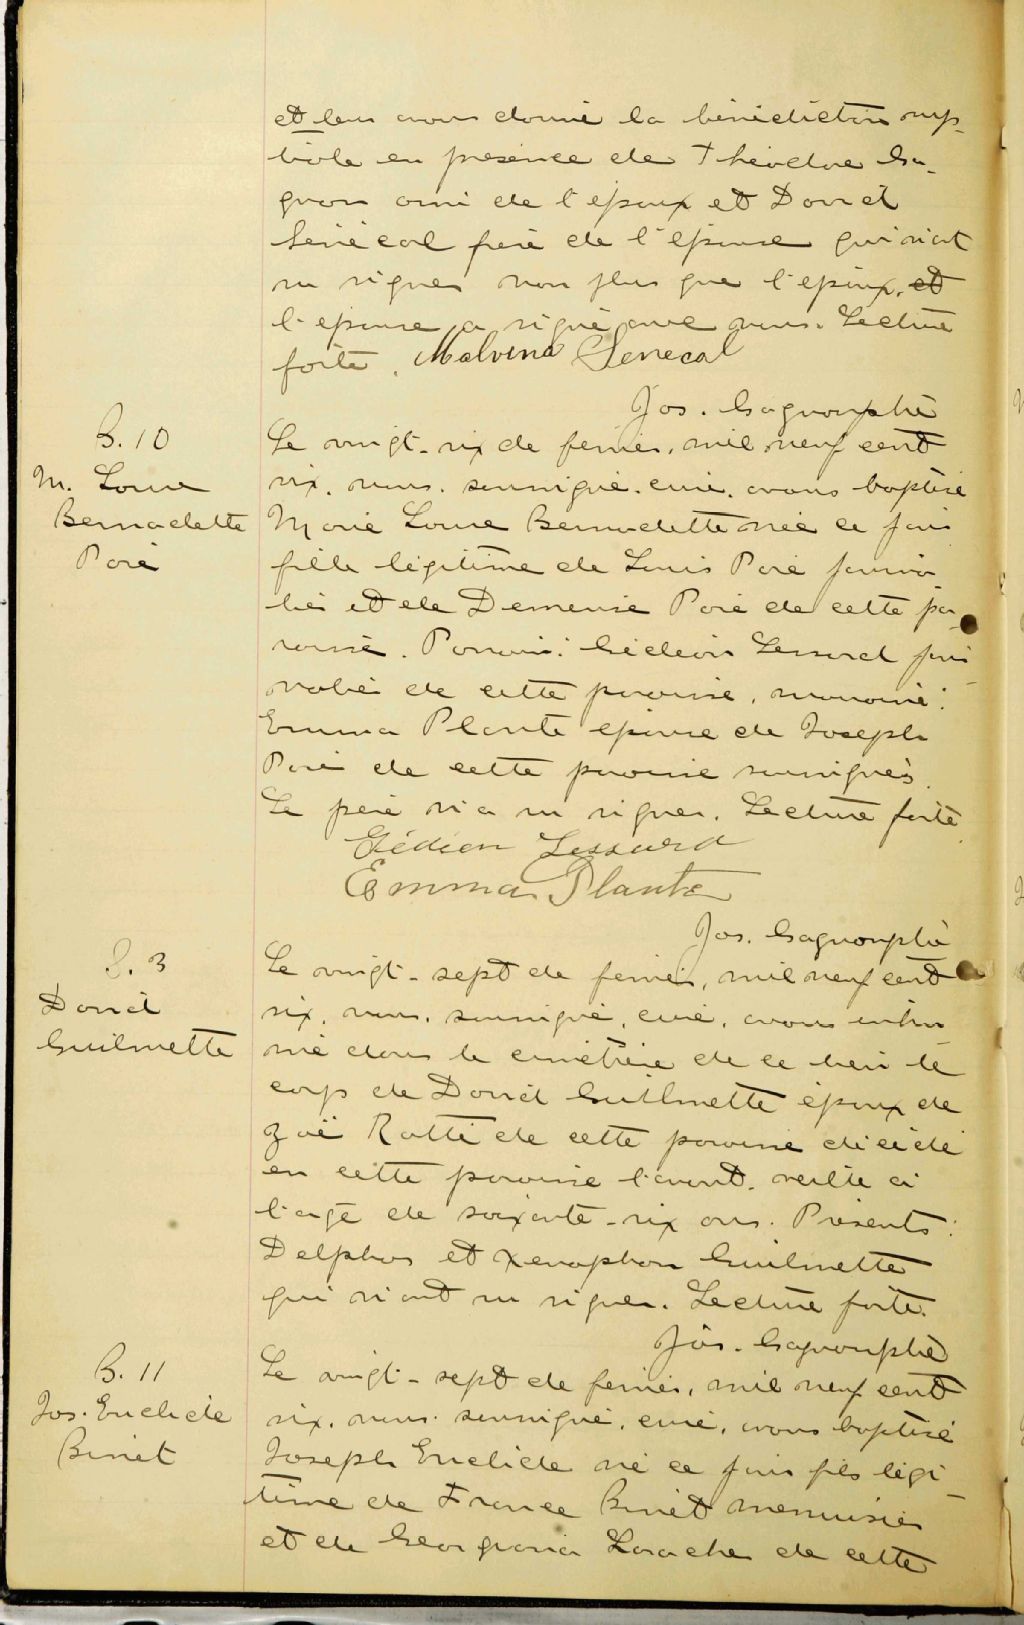 et leur avons donné la bénédiction nup-
tiale en présence de Théodore Ga-
gnon ami de l'époux et David
Sénécal frère de l'épouse qui n'ont
su signer non plus que l'époux, et
l'épouse a signé avec nous. Lecture
faite. Malvina Senecal
Jos. Gagnon ptre
B. 10
M. Louise
Bernadette
Paré
Le vingt-six de février, mil neuf cent
six, nous, soussigné, curé, avons baptisé
Marie Louise Bernadette née ce jour
fille légitime de Louis Paré journa-
lier et de Demerise Paré de cette pa-
roisse. Parrain: Gédéon Lessard jour
nalier de cette paroisse, marraine:
Emma Plante épouse de Joseph
Paré de cette paroisse soussignés.
Le père n'a su signer. Lecture faite
Gédéon Lessard
Emma Plante
Jos. Gagnon ptre
S. 3
David
Guilmette
Le vingt-sept de février, mil neuf cent
six, nous, soussigné, curé, avons inhu
mé dans le cimétière de ce lieu le
corps de David Guilmette époux de
Zoë Ratté de cette paroisse décédé
en cette paroisse l'avant-veille à
l'age de soixante-six ans. Présents:
Delphos et Xenophon Guilmette
qui n'ont su signer. Lecture faite.
Jos. Gagnon ptre
B. 11
Jos. Euclide
Binet
Le vingt-sept de février, mil neuf cent
six, nous, soussigné, curé, avons baptisé
Joseph Euclide né ce jour fils légi-
time de France Binet menuisier
et de Georgiana de cette